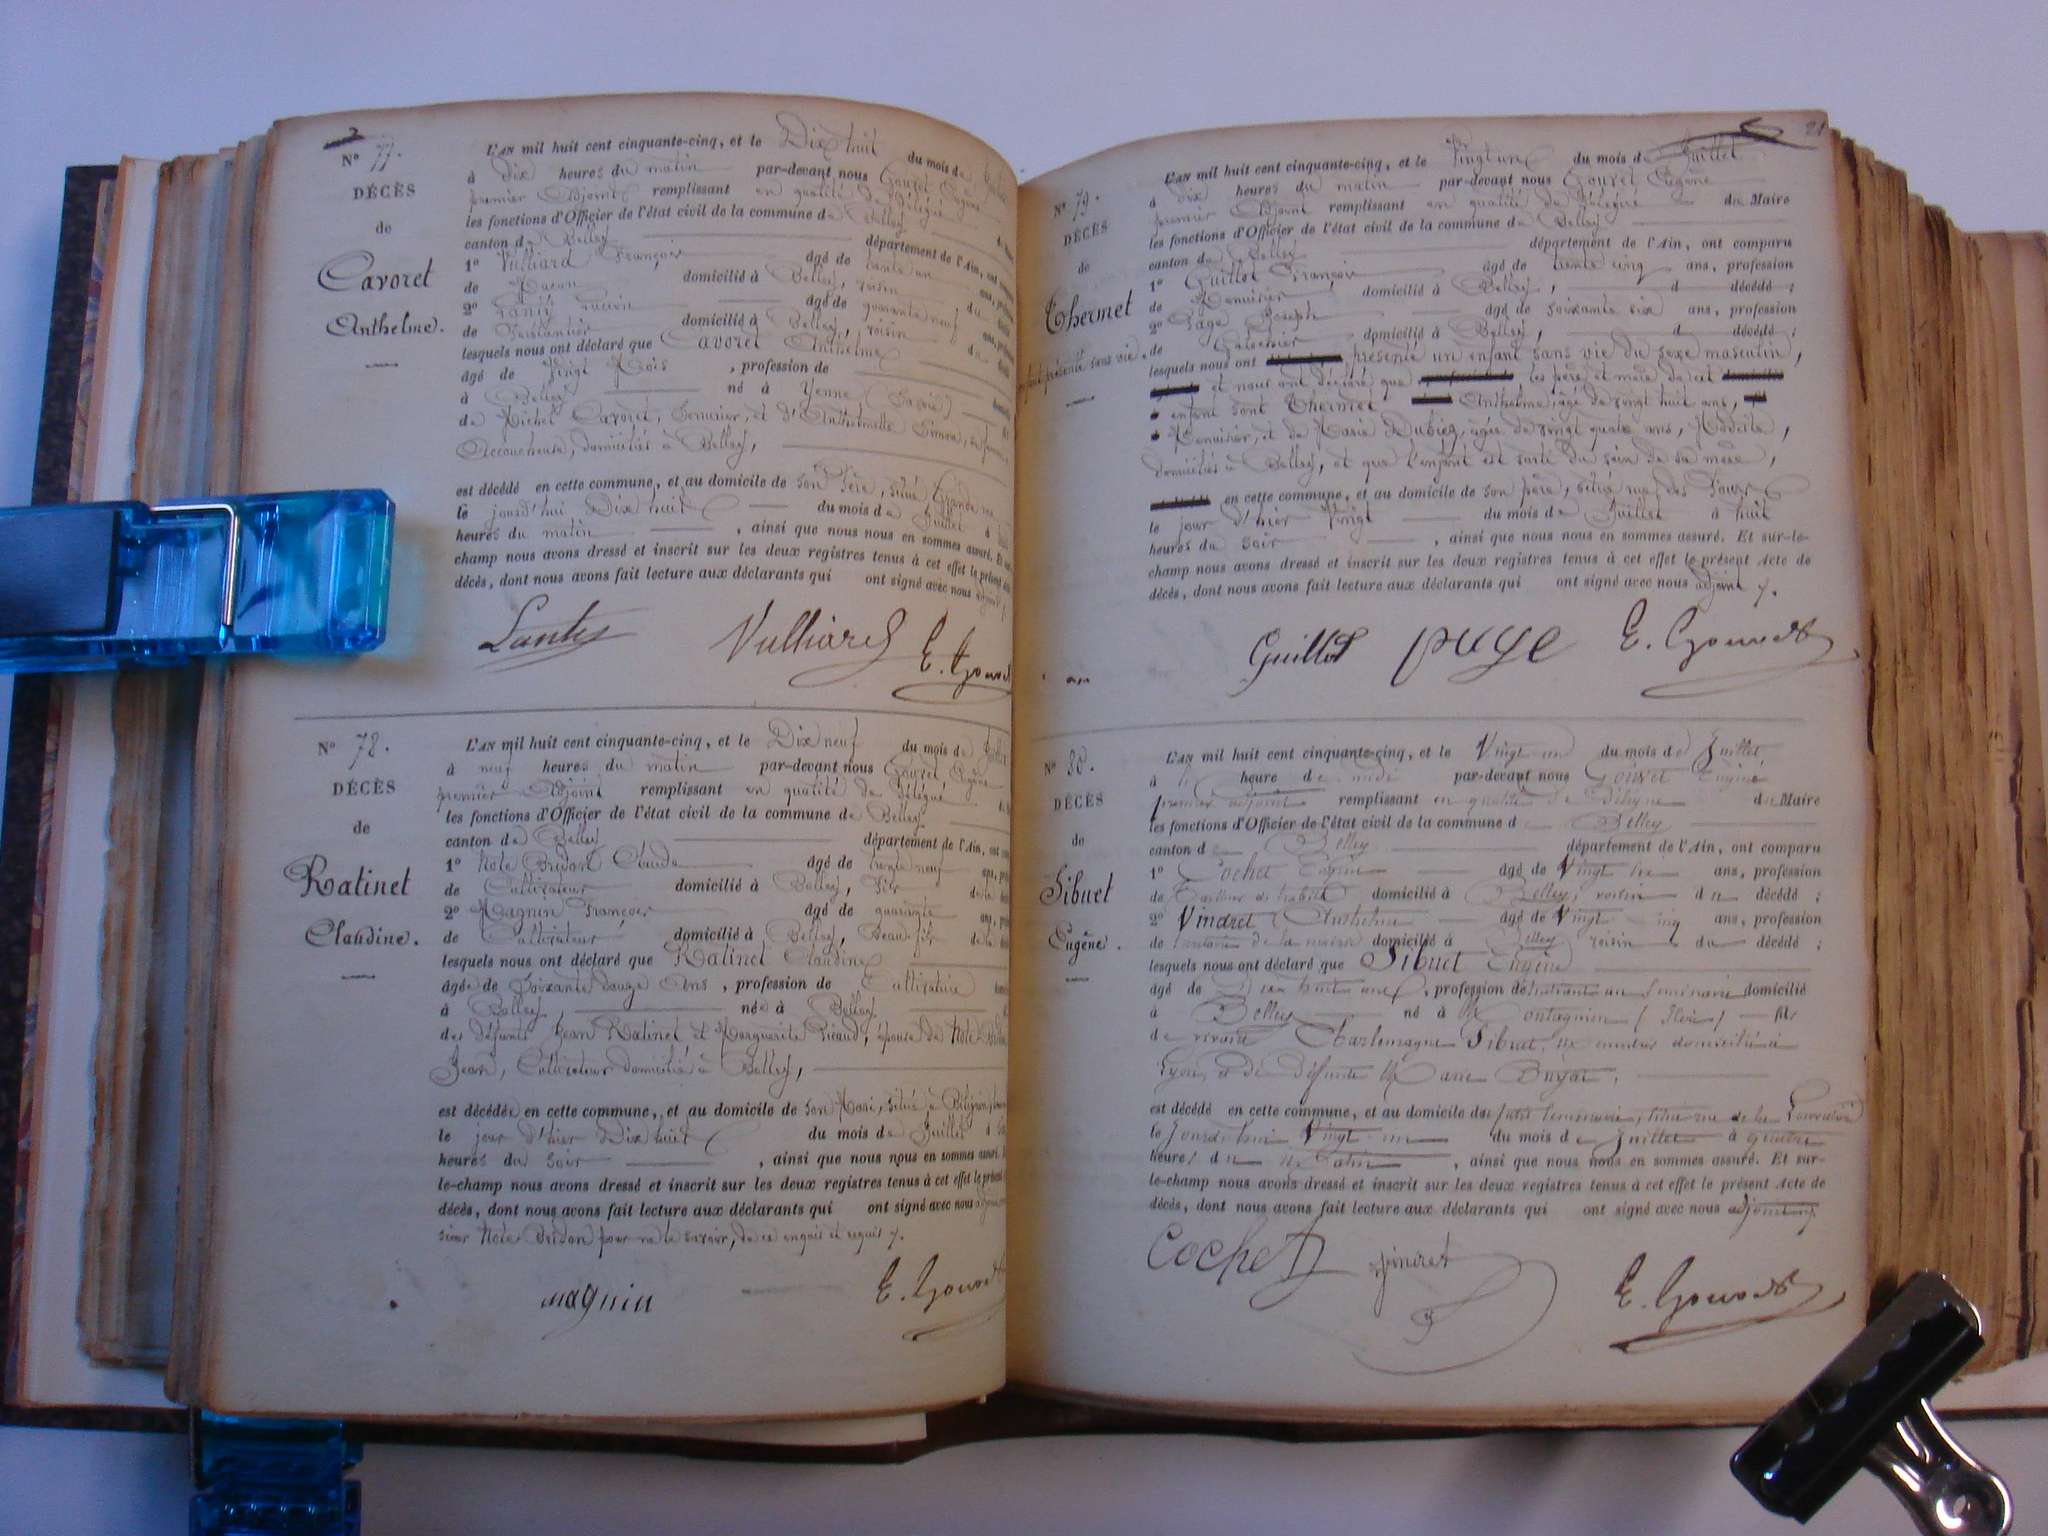 N° 77.
DÉCÈS
de
Cavoret
Anthelme.
L'AN mil huit cent cinquante-cinq, et le Dix huit du mois de
à Dix heures du matin par-devant nous Gouvet Eugène
premier Adjoint remplissant en qualité de Délégué
les fonctions d'Officier de l'état civil de la commune de Belley
canton de Belley département de l'Ain, ont
1° Vulliard François âgé de
de Maçon domicilié à Belley, voisin
2° Lucien âgé de quarante neuf
de domicilié à Belley, voisin du
lesquels nous ont déclaré que Cavoret Anthelme
âgé de Vingt Mois , profession de
à Belley né à Yenne (Savoie)
de Michel Cavoret, Serrurier, et d'Anthelmette
Accoucheuse, domiciliés à Belley,
est décédé en cette commune, et au domicile de son Père, situé Grande rue
le jourd'hui Dix huit du mois de Juillet à
heures du matin , ainsi que nous nous en sommes assuré. Et
champ nous avons dressé et inscrit sur les deux registres tenus à cet effet le présent
décès, dont nous avons fait lecture aux déclarants qui ont signé avec nous adjoint
Vulliard E. Gouvet
N° 78.
DÉCÈS
de
Ratinet
Claudine.
L'AN mil huit cent cinquante-cinq, et le Dix neuf du mois de Juillet
à neuf heures du matin par-devant nous Gouvet Eugène
premier Adjoint remplissant en qualité de Délégué
les fonctions d'Officier de l'état civil de la commune de Belley
canton de Belley département de l'Ain, ont
1° Claude âgé de trente neuf ans,
de Cultivateur domicilié à Belley, Fils de la
2° Magnin François âgé de quarante ans,
de Cultivateur domicilié à Belley, Beau-fils de la
lesquels nous ont déclaré que Ratinet Claudine
âgée de Soixante douze Ans , profession de Cultivatrice
à Belley née à Belley
des défunts Jean Ratinet et Marguerite épouse de
Jean, Cultivateur domicilié à Belley,
est décédée en cette commune, et au domicile de son Mari, situé à
le jour d'hier Dix huit du mois de Juillet à
heures du soir , ainsi que nous nous en sommes assuré.
le-champ nous avons dressé et inscrit sur les deux registres tenus à cet effet le présent
décès, dont nous avons fait lecture aux déclarants qui ont signé avec nous
pour ne le savoir, de ce enquis et requis
magnin E. Gouvet
21
N° 79.
DÉCÈS
de
Thermet
enfant présenté sans vie.
L'AN mil huit cent cinquante-cinq, et le Vingt un du mois de Juillet
à dix heures du matin par-devant nous Gouvet Eugène
premier Adjoint remplissant en qualité de Délégué du Maire
les fonctions d'Officier de l'état civil de la commune de Belley
canton de Belley département de l'Ain, ont comparu
1° Guillot François âgé de trente cinq ans, profession
de Menuisier , domicilié à Belley, d décédé ;
2° Page Joseph âgé de soixante six ans, profession
de domicilié à Belley, d décédé ;
lesquels nous ont présenté un enfant sans vie du sexe masculin,
et nous ont déclaré que les père et mère de cet
enfant sont Thermet Anthelme, âgé de vingt huit ans,
Menuisier, et de Marie Dubiez, âgée de vingt quatre ans, Modiste,
domiciliés à Belley, et que l'enfant est sorti du sein de sa mère,
en cette commune, et au domicile de son père, situé rue des
le jour d'hier Vingt du mois de Juillet à huit
heures du soir , ainsi que nous nous en sommes assuré. Et sur-le-
champ nous avons dressé et inscrit sur les deux registres tenus à cet effet le présent Acte de
décès, dont nous avons fait lecture aux déclarants qui ont signé avec nous adjoint
Guillot E. Gouvet
N° 80.
DÉCÈS
de
Sibuet
Eugène.
L'AN mil huit cent cinquante-cinq, et le Vingt un du mois de Juillet
à heure de midi par-devant nous Gouvet Eugène
premier adjoint remplissant en qualité de Délégué du Maire
les fonctions d'Officier de l'état civil de la commune de Belley
canton de Belley département de l'Ain, ont comparu
1° Cochet Eugène âgé de Vingt ans, profession
de Tailleur d'habits domicilié à Belley, voisin du décédé ;
2° Vindret Anthelme âgé de Vingt cinq ans, profession
de la mairie domicilié à Belley voisin du décédé ;
lesquels nous ont déclaré que Sibuet Eugène
âgé de Dix huit ans , profession d'étudiant au Séminaire domicilié
à Belley né à Montagnieu (Isère) fils
de vivant Charlemagne Sibuet, domicilié à
Lyon, et de défunte
est décédé en cette commune, et au domicile du situé rue de la
le Jourd'hui Vingt un du mois de Juillet à quatre
heures du Matin , ainsi que nous nous en sommes assuré. Et sur-
le-champ nous avons dressé et inscrit sur les deux registres tenus à cet effet le présent Acte de
décès, dont nous avons fait lecture aux déclarants qui ont signé avec nous adjoint
Cochet Vindret E. Gouvet